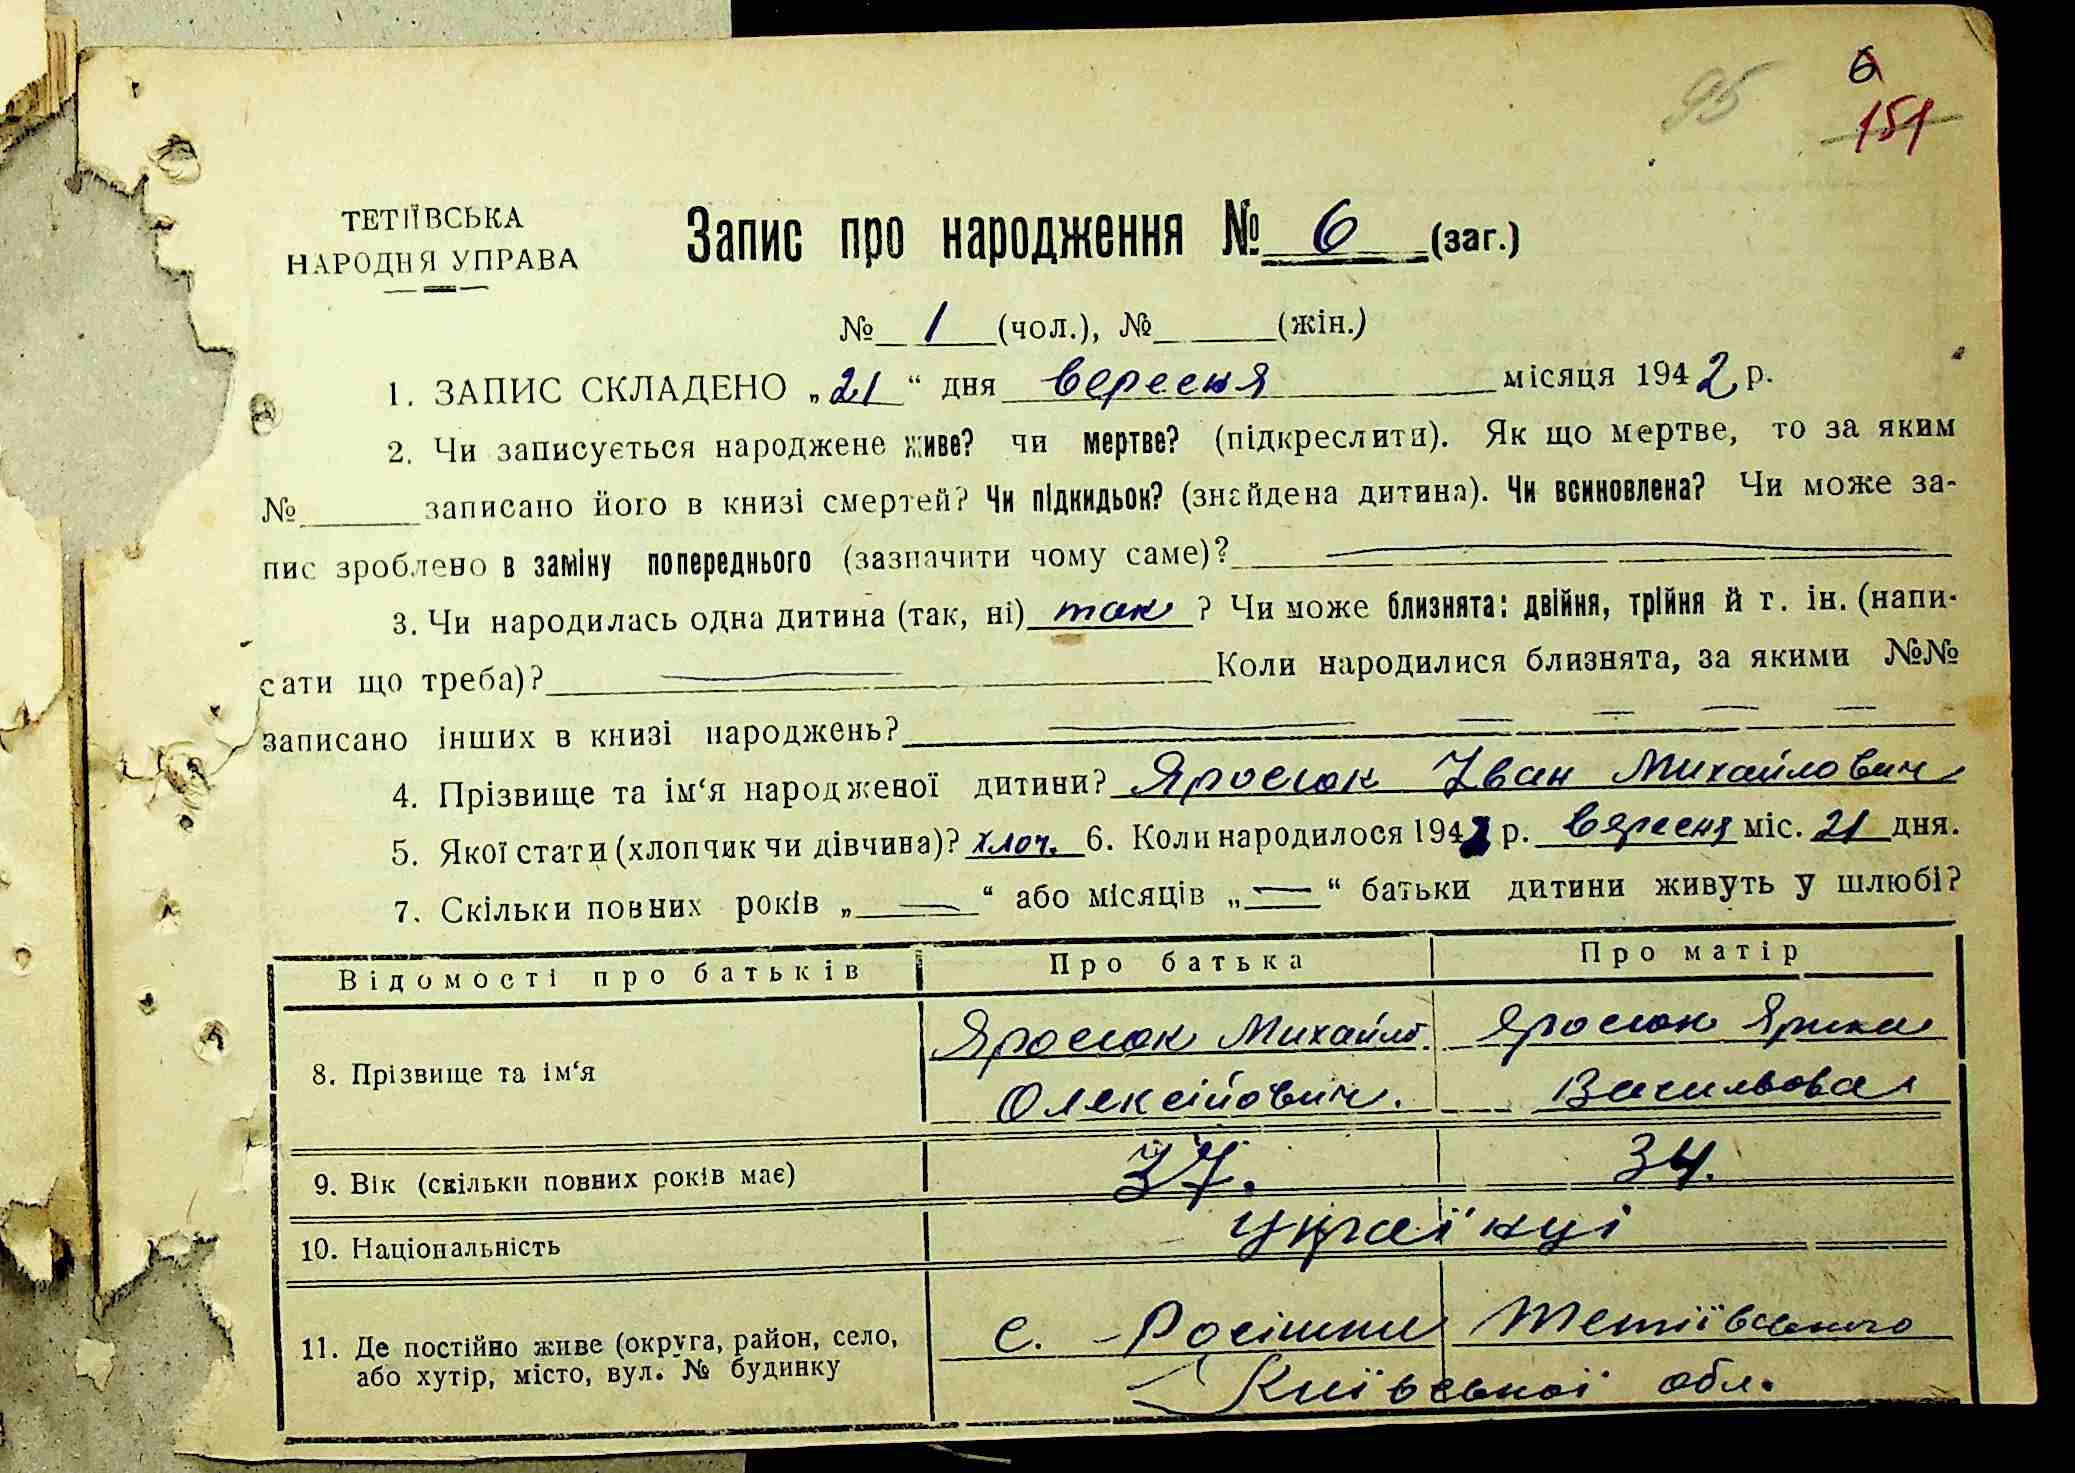 95
6
151
ТЕТІЇВСЬКА
НАРОДНЯ УПРАВА
Запис про народження № 6 (заг.)
№ 1 (чол.), № (жін.)
1. ЗАПИС СКЛАДЕНО „21“ дня вересня місяця 1942 р.
2. Чи записується народжене живе? чи мертве? (підкреслити). Як що мертве, то за яким
№ записано його в книзі смертей? Чи підкидьок? (знайдена дитина). Чи всиновлена? Чи може за-
пис зроблено в заміну попереднього (зазначити чому саме)?
3. Чи народилась одна дитина (так, ні) так ? Чи може близнята: двійня, трійня й т. ін. (напи-
сати що треба)? Коли народилися близнята, за якими №№
записано інших в книзі народжень?
4. Прізвище та ім‘я народженої дитини? Яросюк Іван Михайлович
5. Якої стати (хлопчик чи дівчина)? хлоп. 6. Коли народилося 1942 р. вересня міс. 21 дня.
7. Скільки повних років „ — “ або місяців „ — “ батьки дитини живуть у шлюбі?
Відомості про батьків Про батька Про матір
8. Прізвище та ім‘я Яросюк Михайло Яросюк
Олексійович.
9. Вік (скільки повних років має) 37. 34.
10. Національність українці
11. Де постійно живе (округа, район, село, с. Росішки Тетіївського
або хутір, місто, вул. № будинку Київської обл.